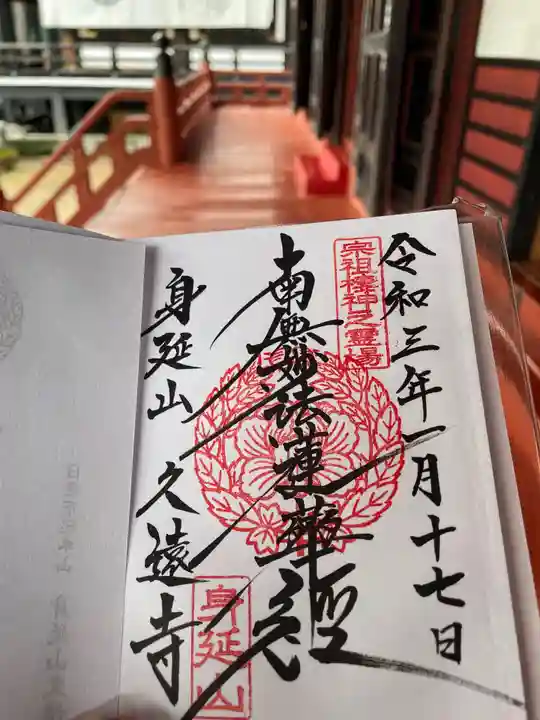 令和三年一月十七日
宗祖棲神之霊場
南無妙法蓮華経
身延山 久遠寺
身延山